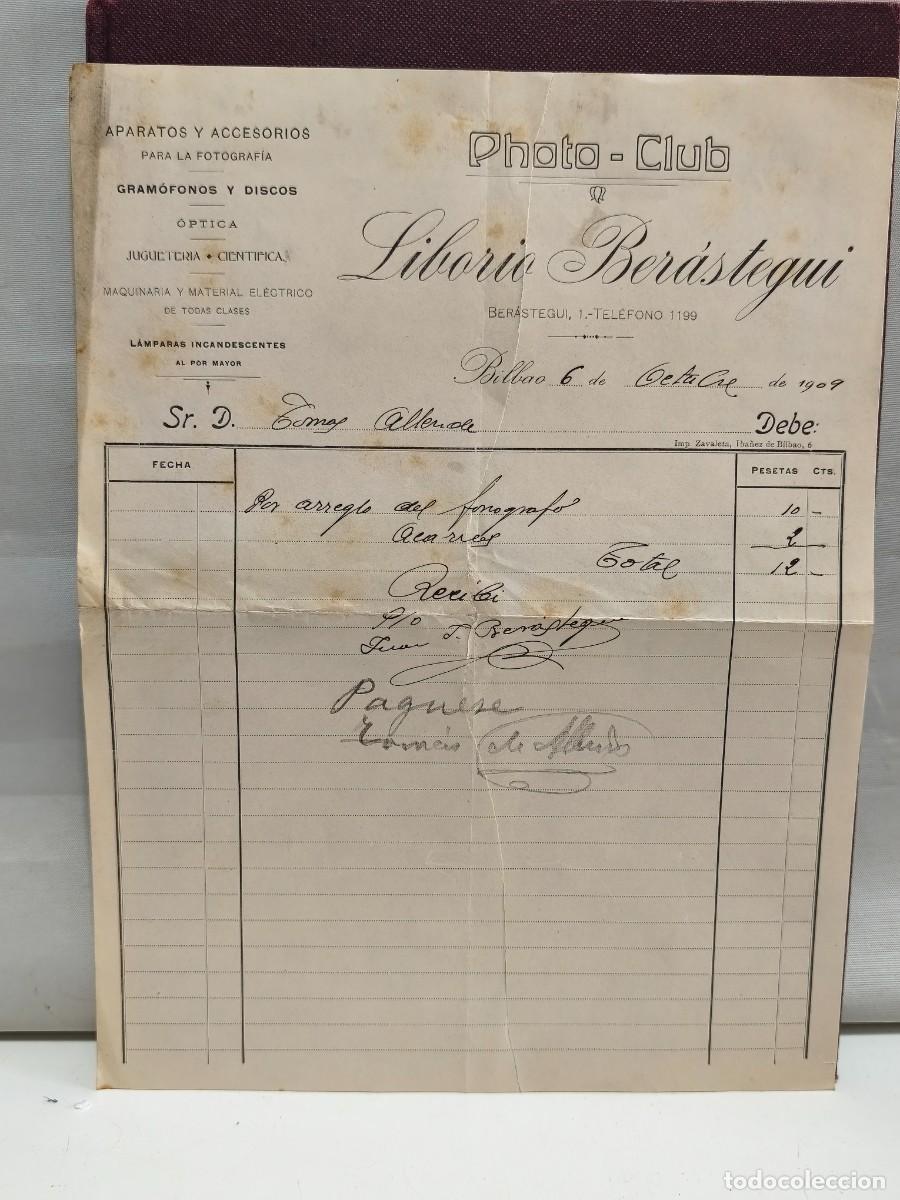 APARATOS Y ACCESORIOS
PARA LA FOTOGRAFÍA
GRAMÓFONOS Y DISCOS
ÓPTICA
JUGUETERIA CIENTIFICA
MAQUINARIA Y MATERIAL ELÉCTRICO
DE TODAS CLASES
LÁMPARAS INCANDESCENTES
AL POR MAYOR
Photo-Club
Liborio Berástegui
BERÁSTEGUI, 1.-TELÉFONO 1199
Bilbao 6 de Octubre de 1909
Sr. D. Tomas Allende Debe:
Imp. Zavaleta, Ibañez de Bilbao, 6
FECHA PESETAS CTS.
Por arreglo del fonografo 10 -
Acarreos 2 -
Total 12 -
Recibi
P/o
Juan T. Berastegui
Paguese
Tomás de Allende
todocoleccion